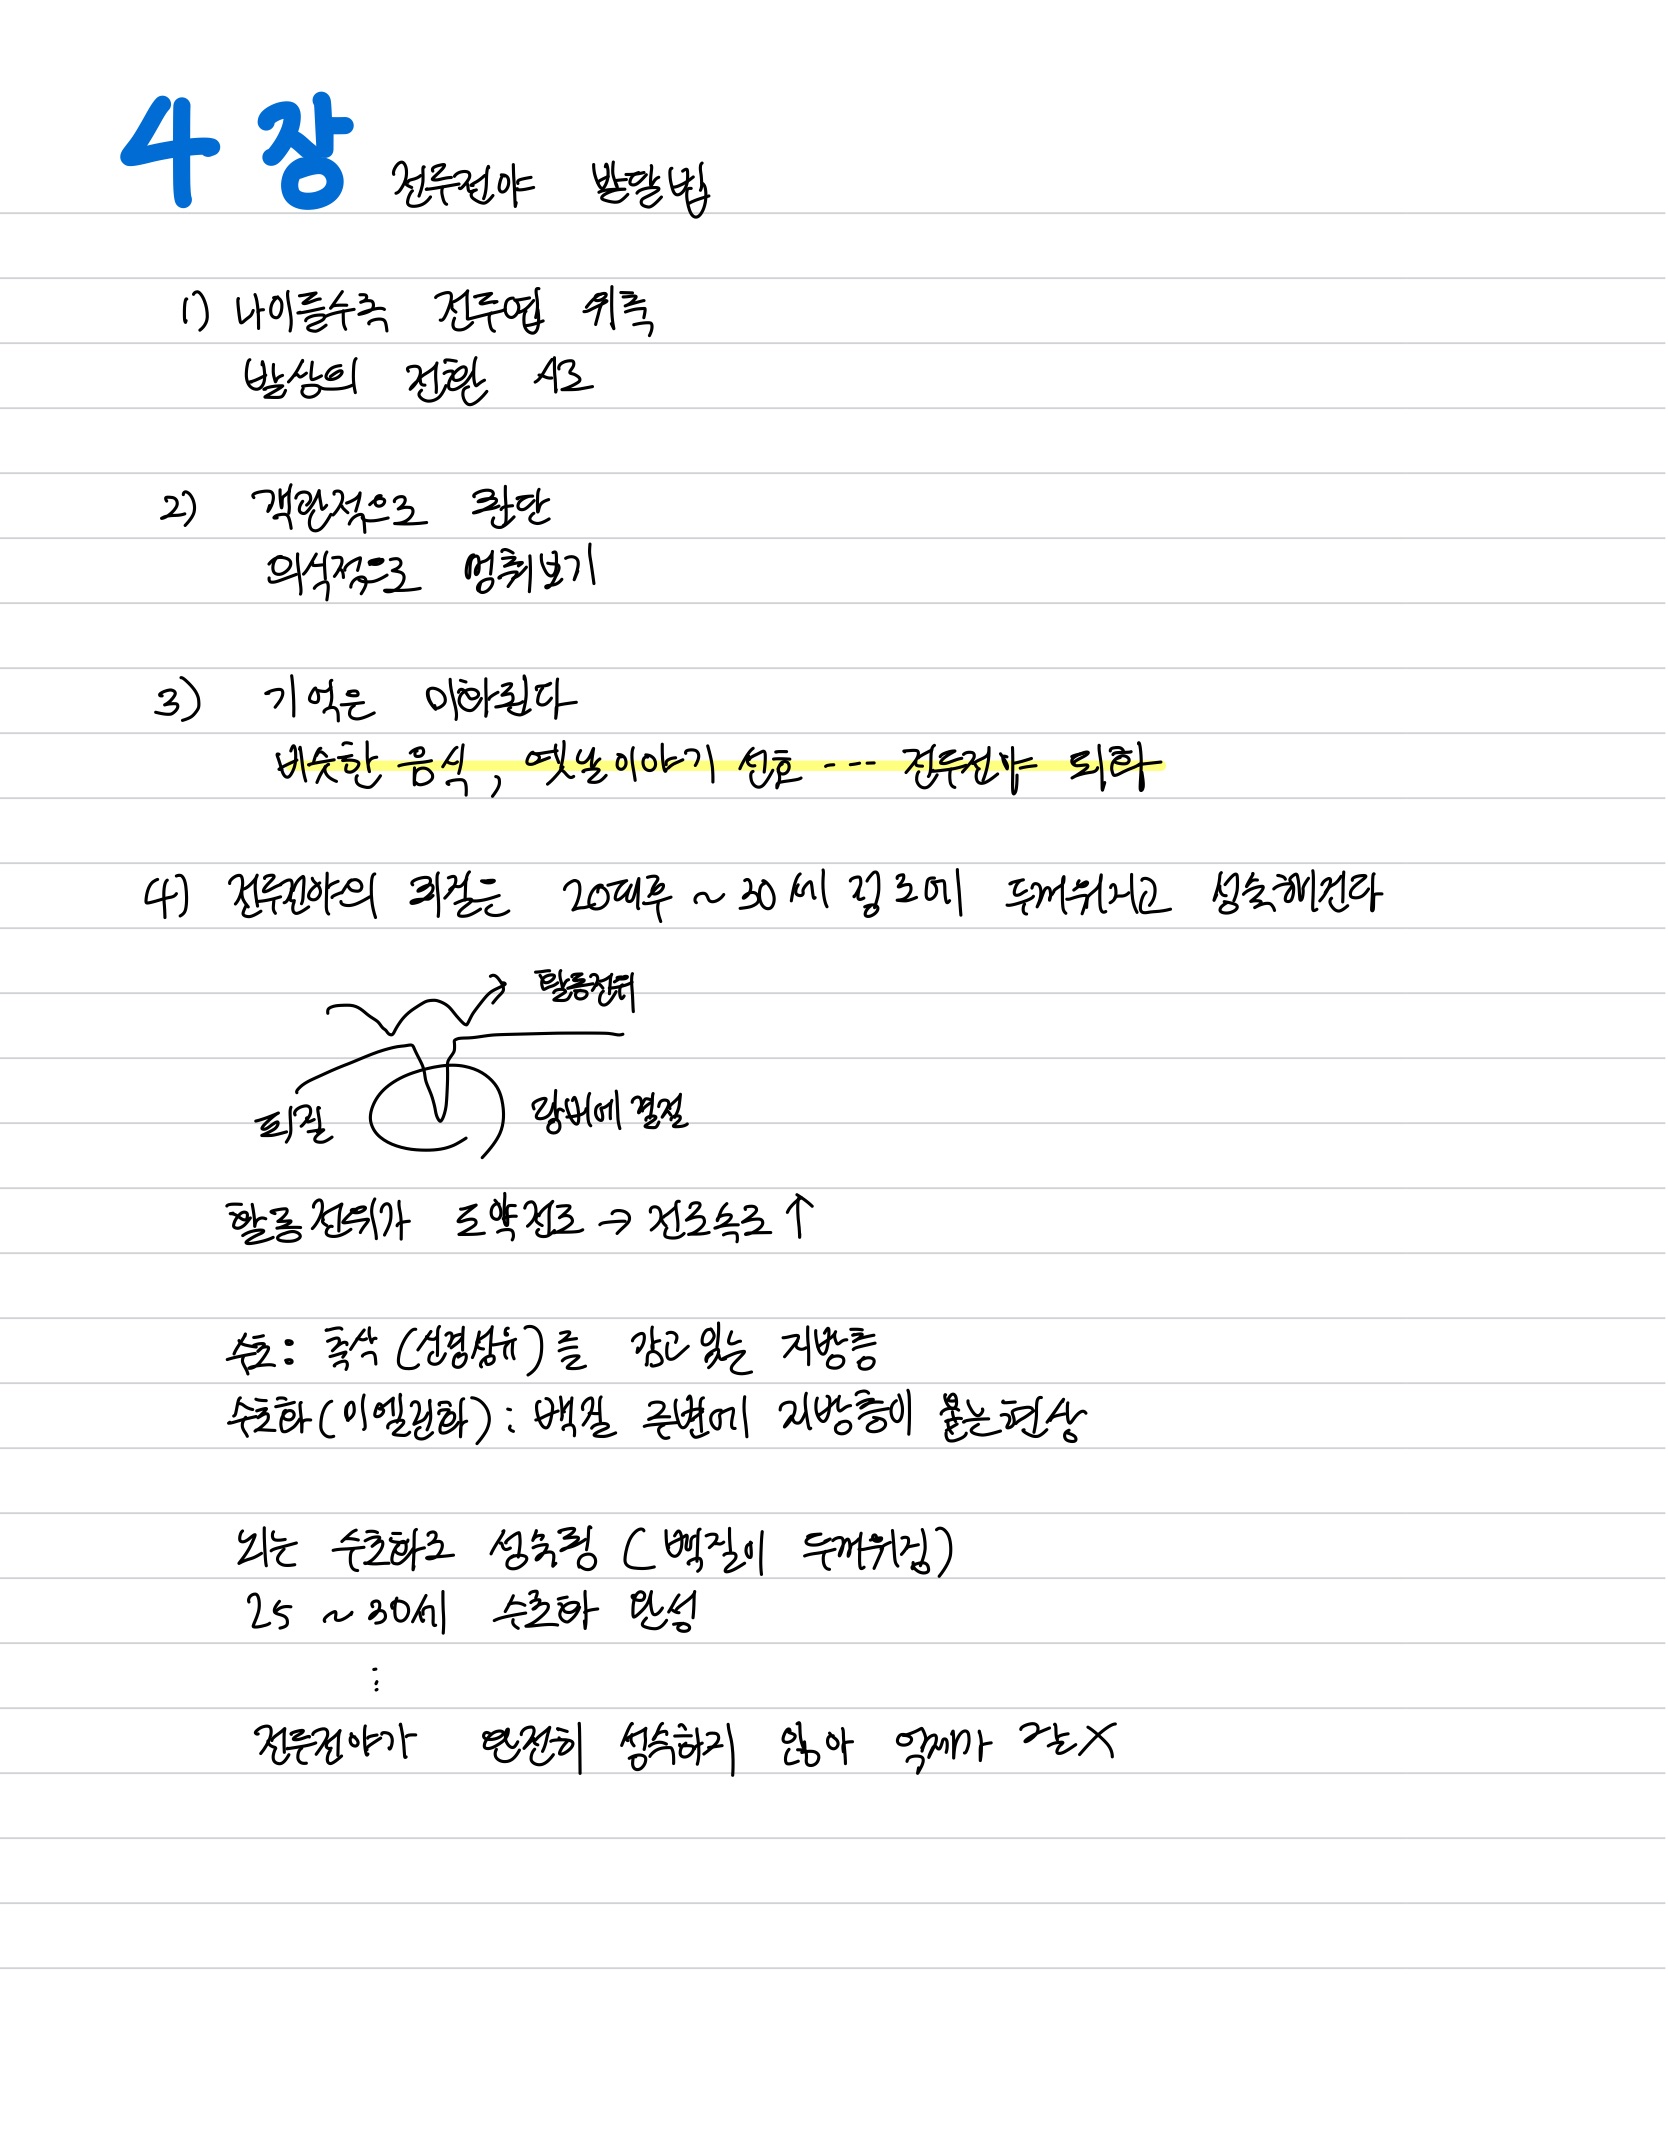 4장 전두전야 발달법
1) 나이들수록 전두엽 위축
발상의 전환 시도
2) 객관적으로 판단
의식적으로 멈춰보기
3) 기억은 미화된다
비슷한 음식, 옛날이야기 선호 --- 전두전야 퇴화
4) 전두전야의 피질은 20대후 ~ 30세 정도에 두꺼워지고 성숙해진다
활동전위
피질
랑비에 결절
활동전위가 도약전도 → 전도속도 ↑
수초: 축삭(신경섬유)를 감고 있는 지방층
수초화(미엘린화): 백질 주변에 지방층이 붙는 현상
뇌는 수초화로 성숙됨 (백질이 두꺼워짐)
25 ~ 30세 수초화 완성
⋮
전두전야가 완전히 성숙하지 않아 억제가 잘 X